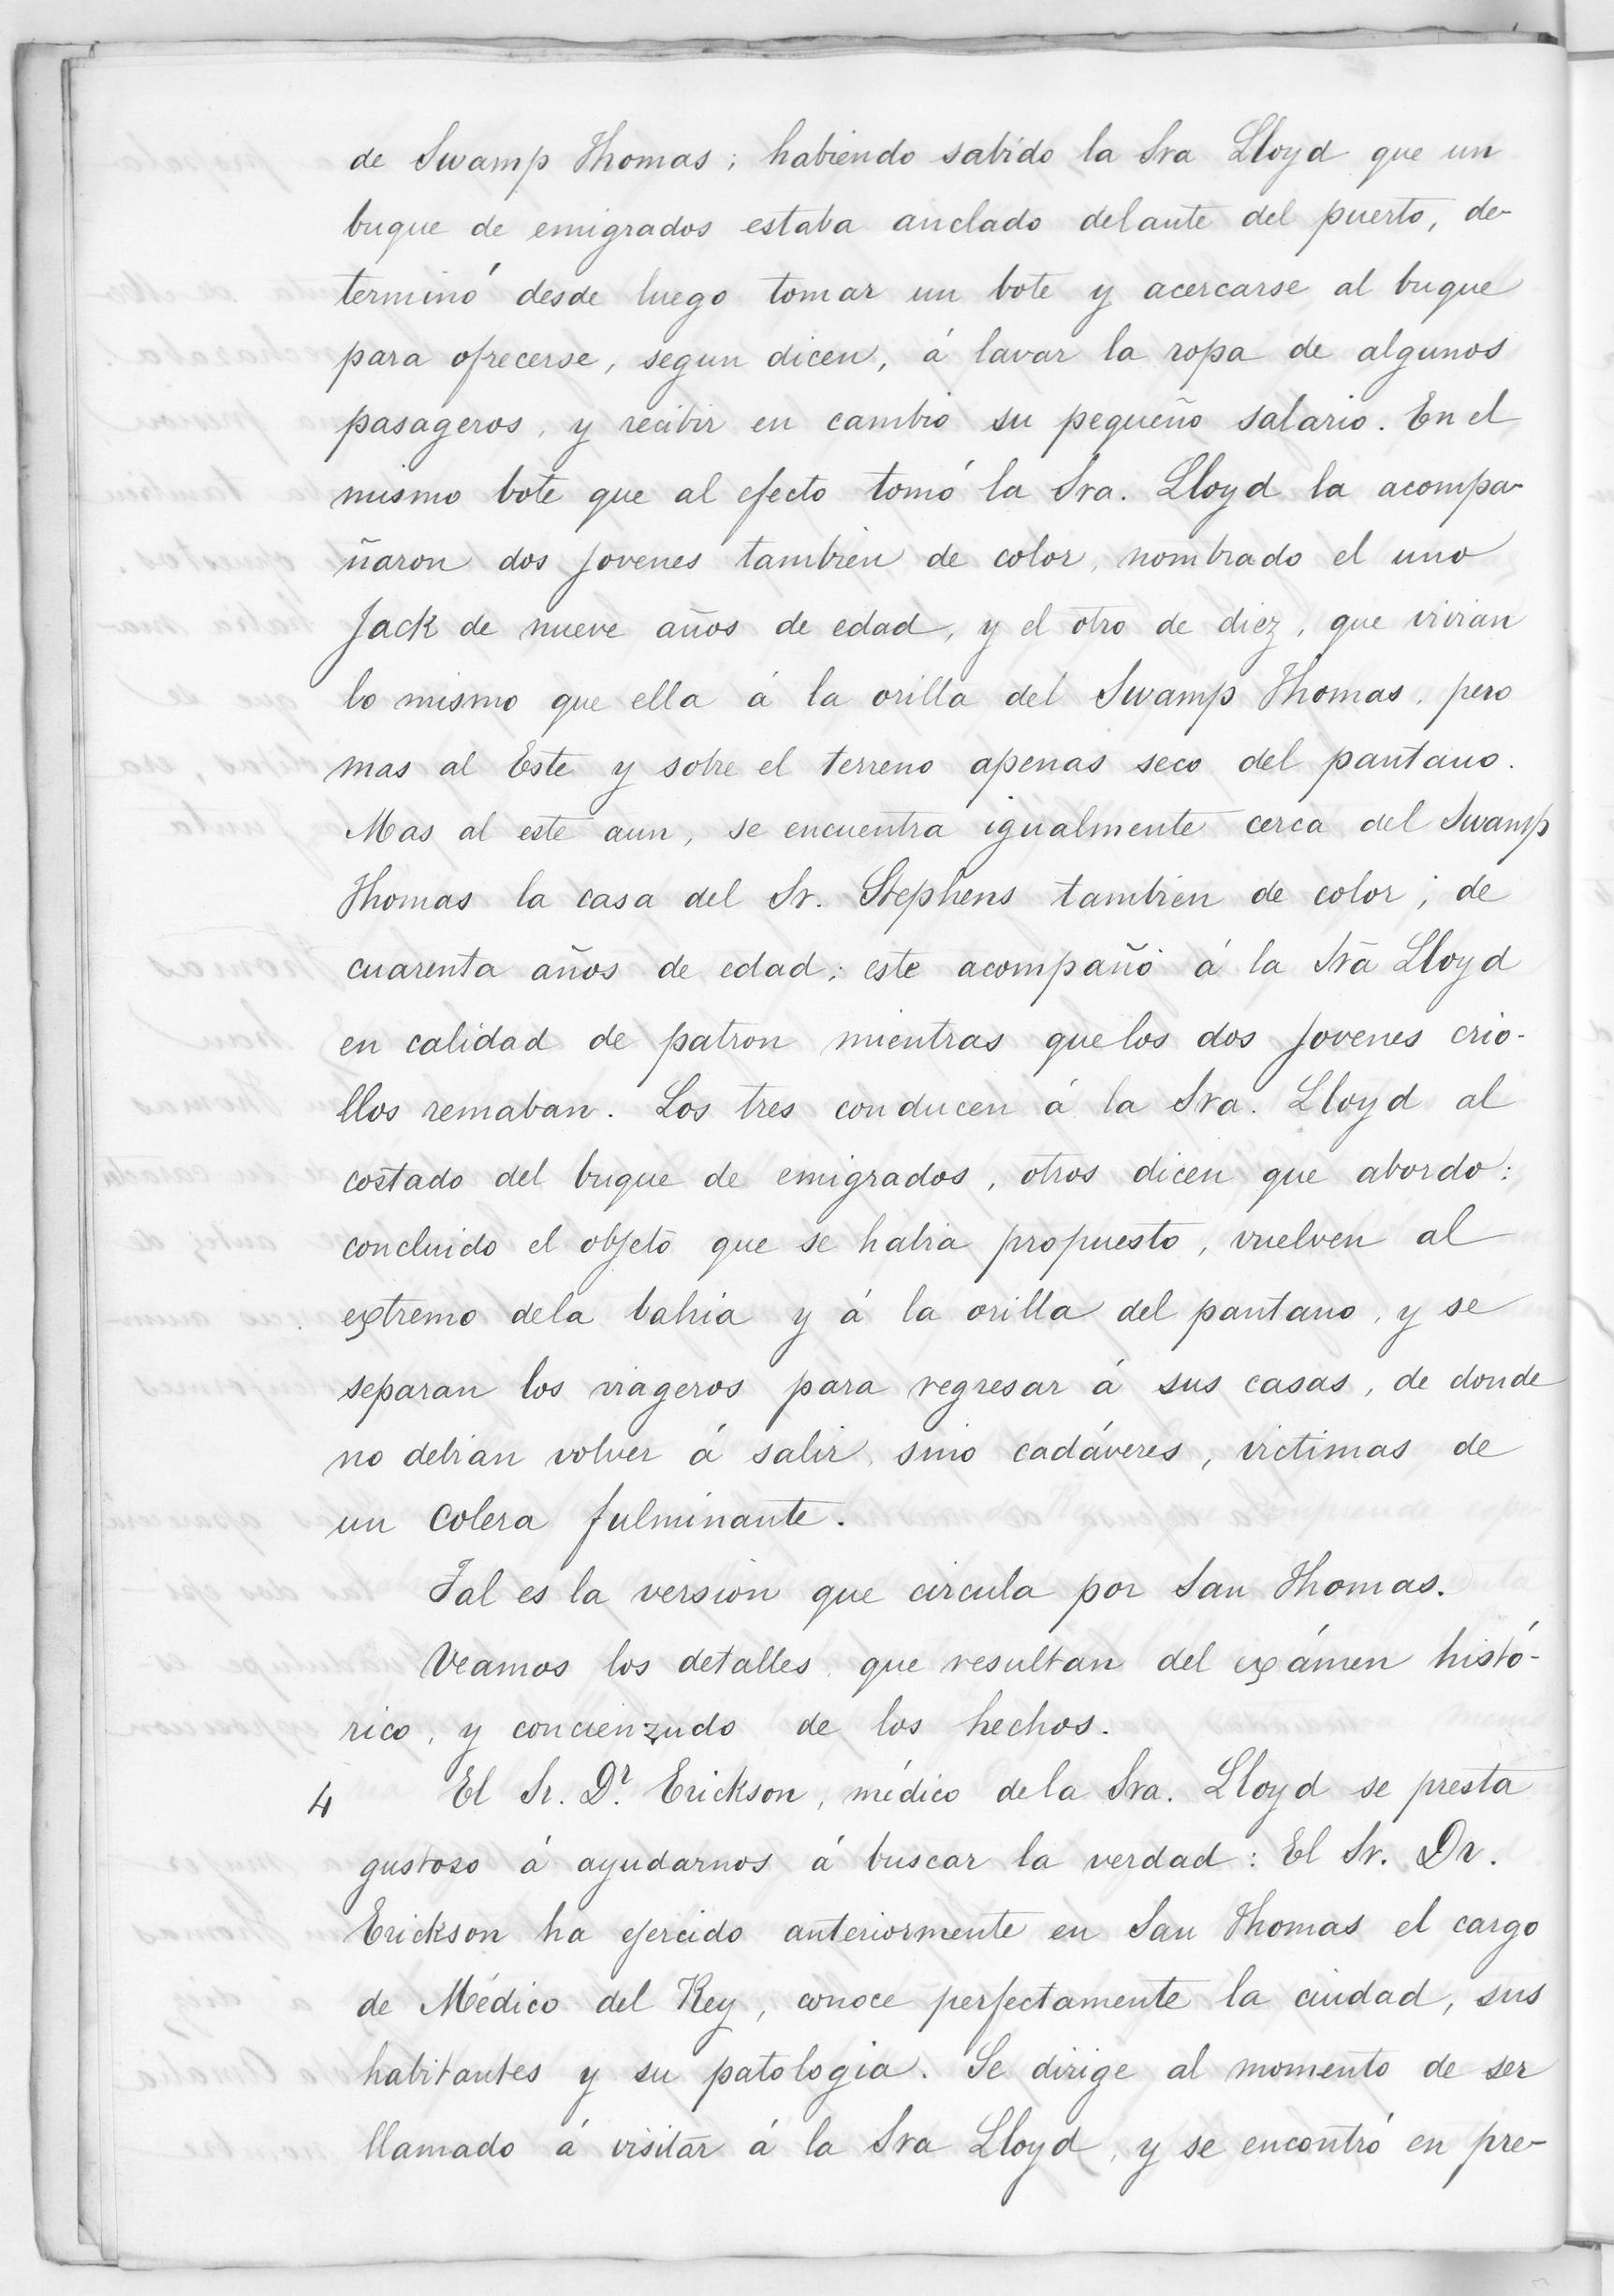 de Swamp Thomas; habiendo sabido la Sra Lloyd que un
buque de emigrados estaba anclado delante del puerto, de-
terminó desde luego tomar un bote y acercarse al buque
para ofrecerse, segun dicen, á lavar la ropa de algunos
pasageros, y recibir en cambio su pequeño salario. En el
mismo bote que al efecto tomó la Sra. Lloyd la acompa-
ñaron dos jovenes tambien de color, nombrado el uno
Jack de nueve años de edad, y el otro de diez, que vivian
lo mismo que ella á la orilla del Swamp Thomas, pero
mas al Este y sobre el terreno apenas seco del pantano.
Mas al este aun, se encuentra igualmente cerca del Swamp
Thomas la casa del Sr. Stephens tambien de color, de
cuarenta años de edad; este acompañó á la Sra Lloyd
en calidad de patron mientras que los dos jovenes crio-
llos remaban. Los tres conducen á la Sra. Lloyd al
costado del buque de emigrados, otros dicen que abordo:
concluido el objeto que se habia propuesto, vuelven al
extremo dela bahia y á la orilla del pantano, y se
separan los viageros para regresar á sus casas, de donde
no debian volver á salir, sino cadáveres, victimas de
un colera fulminante.
Tal es la version que circula por San Thomas.
Veamos los detalles, que resultan del exámen histó-
rico, y concienzudo de los hechos.
4 El Sr. Dr. Erickson, médico dela Sra. Lloyd se presta
gustoso á ayudarnos á buscar la verdad: El Sr. Dr.
Erickson ha ejercido anteriormente en San Thomas el cargo
de Médico del Rey, conoce perfectamente la ciudad, sus
habitantes y su patologia. Se dirige al momento de ser
llamado á visitar á la Sra Lloyd, y se encontró en pre-